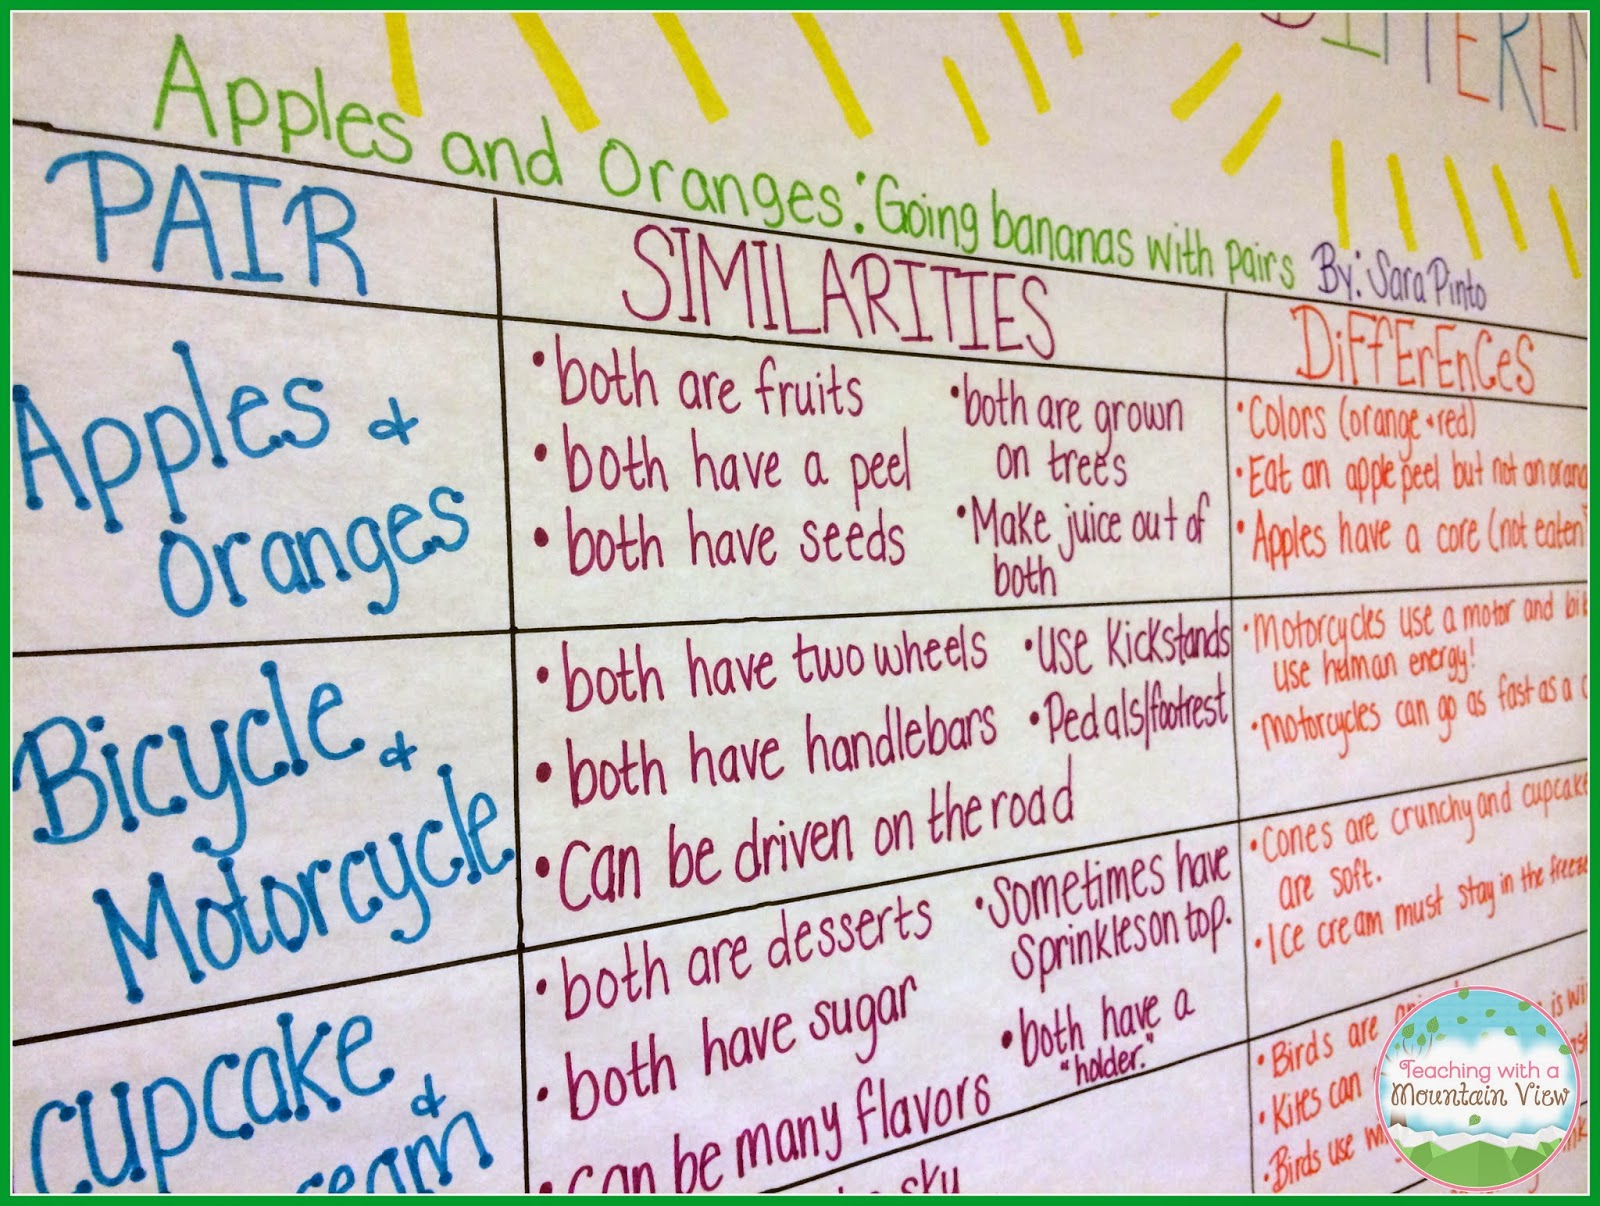 DIFFEREN
Apples and Oranges: Going bananas with pairs By: Sara Pinto
PAIR
SIMILARITIES
DiFfErEnCeS
Apples &
oranges
• both are fruits
• both have a peel
• both have seeds
• both are grown
on trees
• Make juice out of
both
• Colors (orange + red)
• Eat an apple peel but not an oran
• Apples have a core (not eaten
Bicycle &
Motorcycle
• both have two wheels
• both have handlebars
• can be driven on the road
• use kickstands
• Pedals/footrest
• Motorcycles use a motor and bi
use human energy!
• Motorcycles can go as fast as a c
cupcake &
ream
• both are desserts
• both have sugar
• can be many flavors
• Sometimes have
sprinkles on top.
• both have a
"holder."
• Cones are crunchy and cupcake
are soft.
• Ice cream must stay in the freeze
sky
• Birds are
is wi
• Kites can
• Birds use
Teaching with a
Mountain View